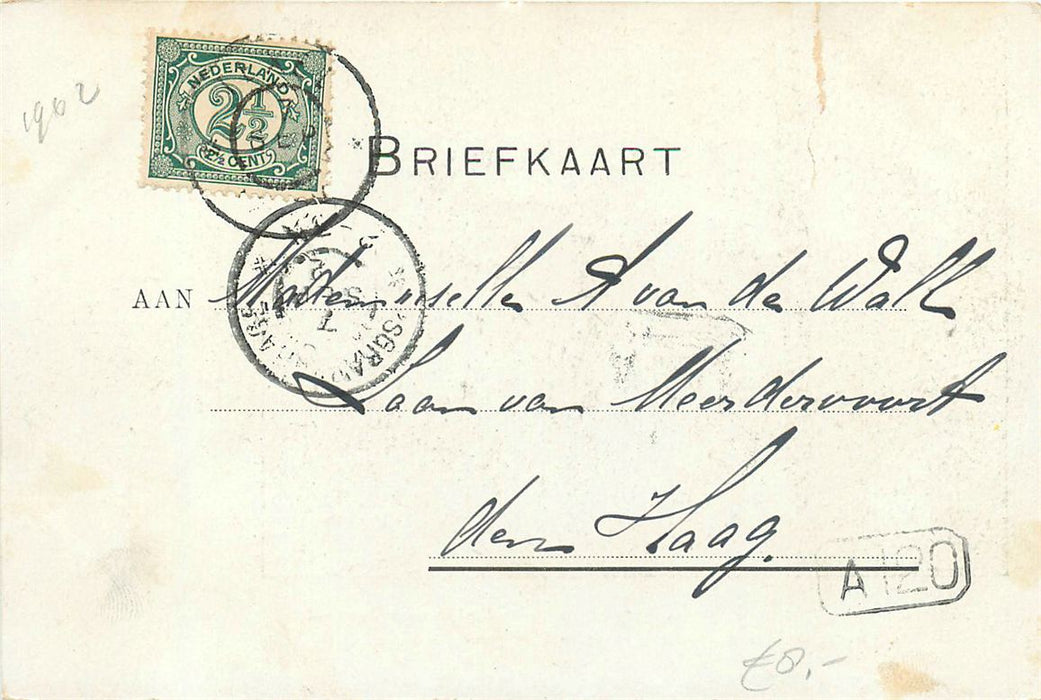 1902
NEDERLAND
2 1/2
2 1/2 CENT
BRIEFKAART
AAN Mademoiselle A van de Wall
Laan van Meerdervoort
den Haag.
'SGRAVENHAGE
A 120
€8,-